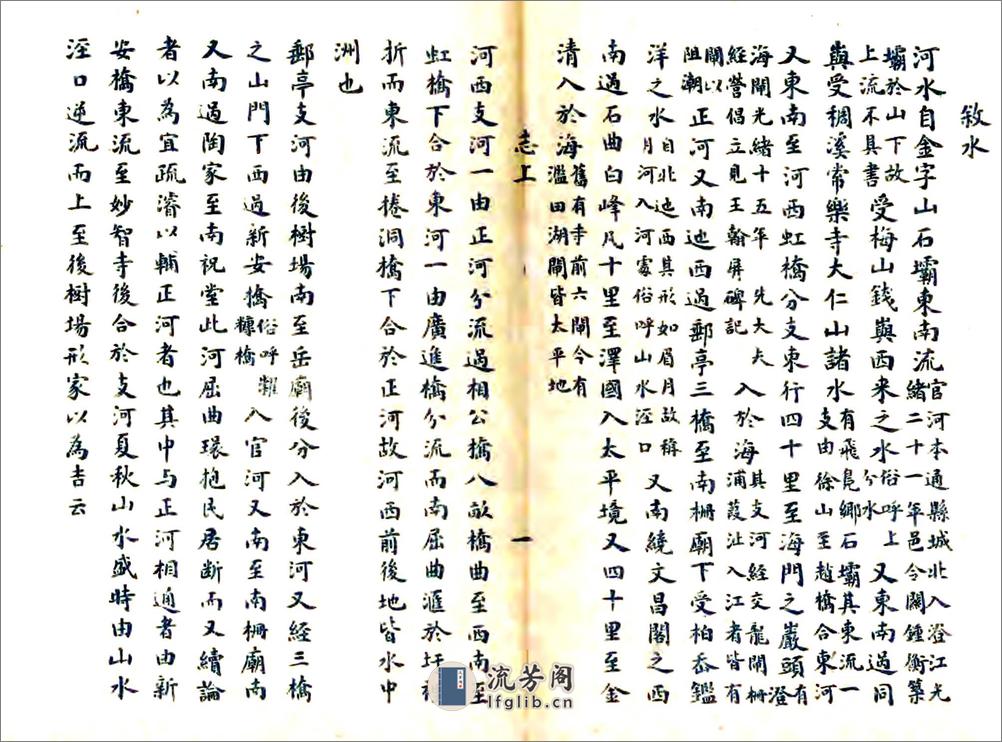 敘水
河水自金字山石壩東南流官河本通縣城北入澄江光緒二十一年邑令關鍾衡築
壩於山下故上流不具書受梅山錢與西来之水俗呼上分水又東南過同
與受稠溪常樂寺大仁山諸水有飛鳧鄉石壩其東流一支由徐山至趙橋合東河
又東南至河西虹橋分支東行四十里至海門之巖頭有澄
海閘光緒十五年先大夫經營倡立見王翰屏碑記入於海其支河經交龍閘柵浦葭沚入江者皆有
閘以阻潮正河又南迆西過郵亭三橋至南柵廟下受柏岙鑑
洋之水自北迆西其形如眉月故稱月河入河處俗呼山水涇口又南繞文昌閣之西
南過石曲白峰凡十里至澤國入太平境又四十里至金
清入於海舊有寺前六閘今有濫田湖閘皆太平地
志上 一
河西支河一由正河分流過相公橋八畝橋曲至西南至
虹橋下合於東河一由廣進橋分流而南屈曲滙於圩
折而東流至捲洞橋下合於正河故河西前後地皆水中
洲也
郵亭支河由後樹場南至岳廟後分入於東河又經三橋
之山門下西過新安橋俗呼糶糠橋入官河又南至南柵廟南
又南過陶家至南祝堂此河屈曲環抱民居断而又續論
者以為宜疏濬以輔正河者也其中与正河相通者由新
安橋東流至妙智寺後合於支河夏秋山水盛時由山水
涇口逆流而上至後樹場形家以為吉云
流芳阁
lfglib.cn